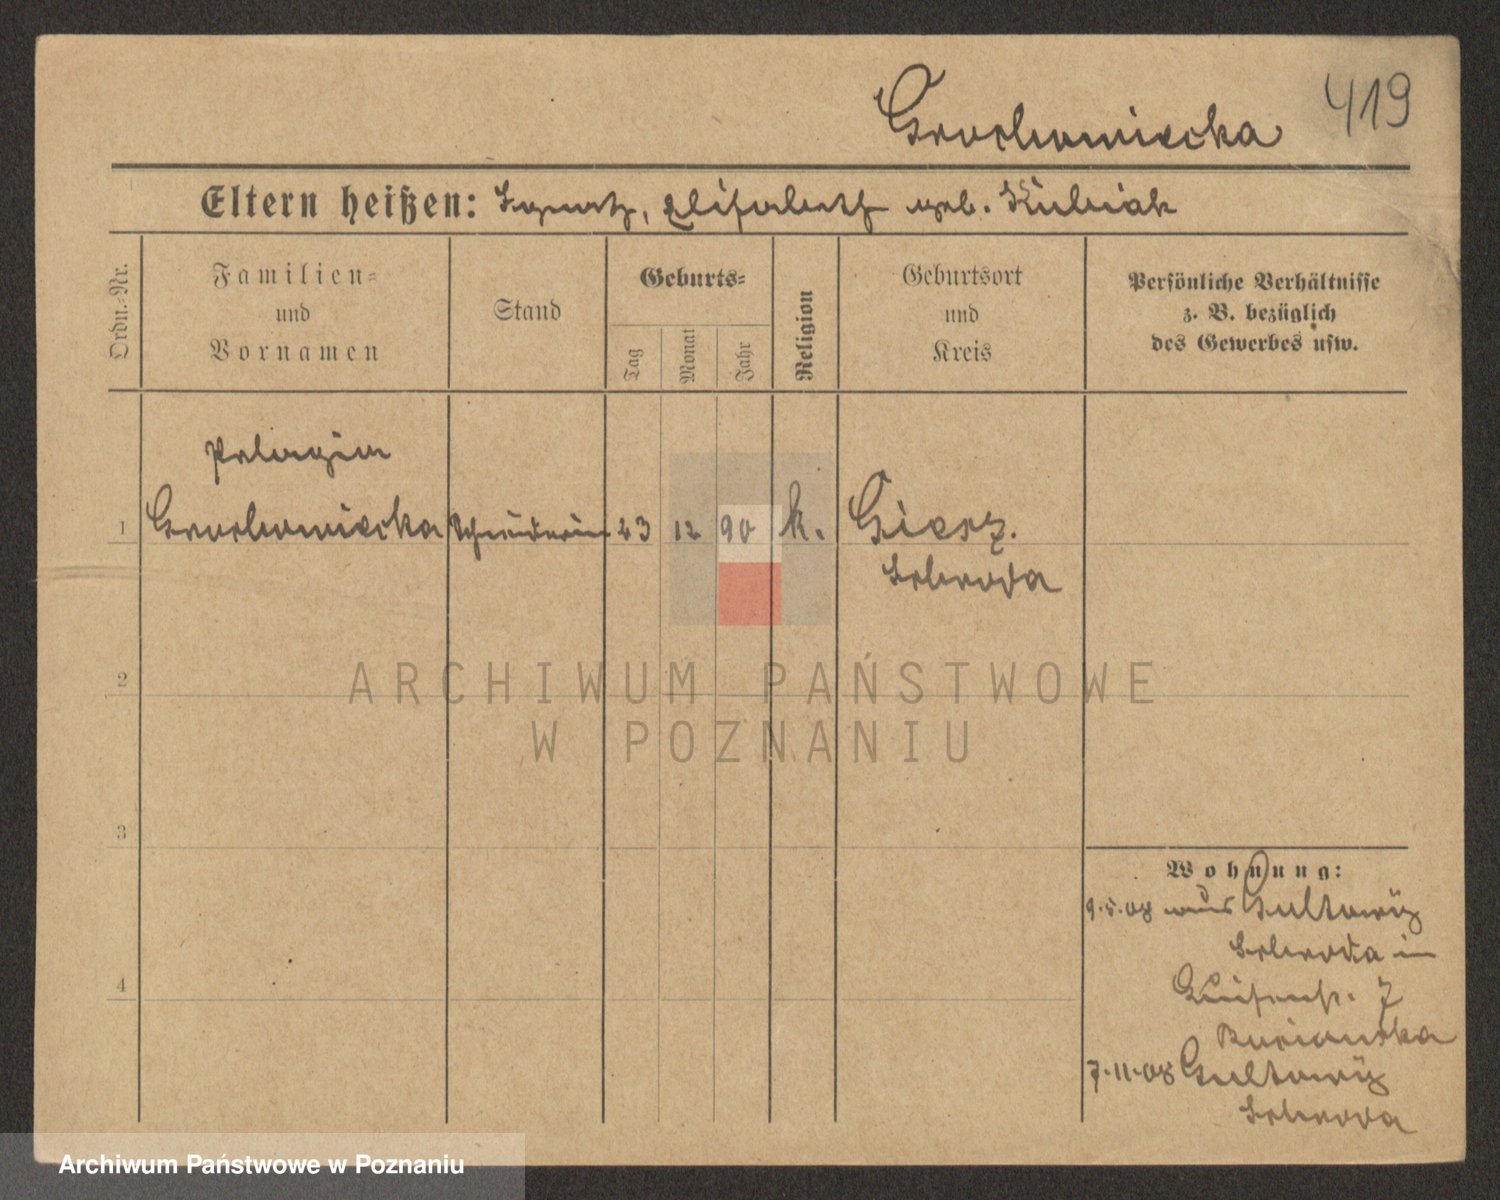 419
Grochowiecka
Eltern heißen: Ignatz, Elisabeth geb. Kubiak
Ordn.-Nr.
Familien-
und
Vornamen
Stand
Geburts-
Tag
Monat
Jahr
Religion
Geburtsort
und
Kreis
Persönliche Verhältnisse
z. B. bezüglich
des Gewerbes usw.
Pelagia
1 Grochowiecka Schneiderin 23 12 90 k. Giecz.
Schroda
2
3
4
Wohnung:
9.5.08 aus Gultowy
Schroda in
Luisenstr. 7
7.11.08 Gultowy
Schroda
ARCHIWUM PAŃSTWOWE
W POZNANIU
Archiwum Państwowe w Poznaniu